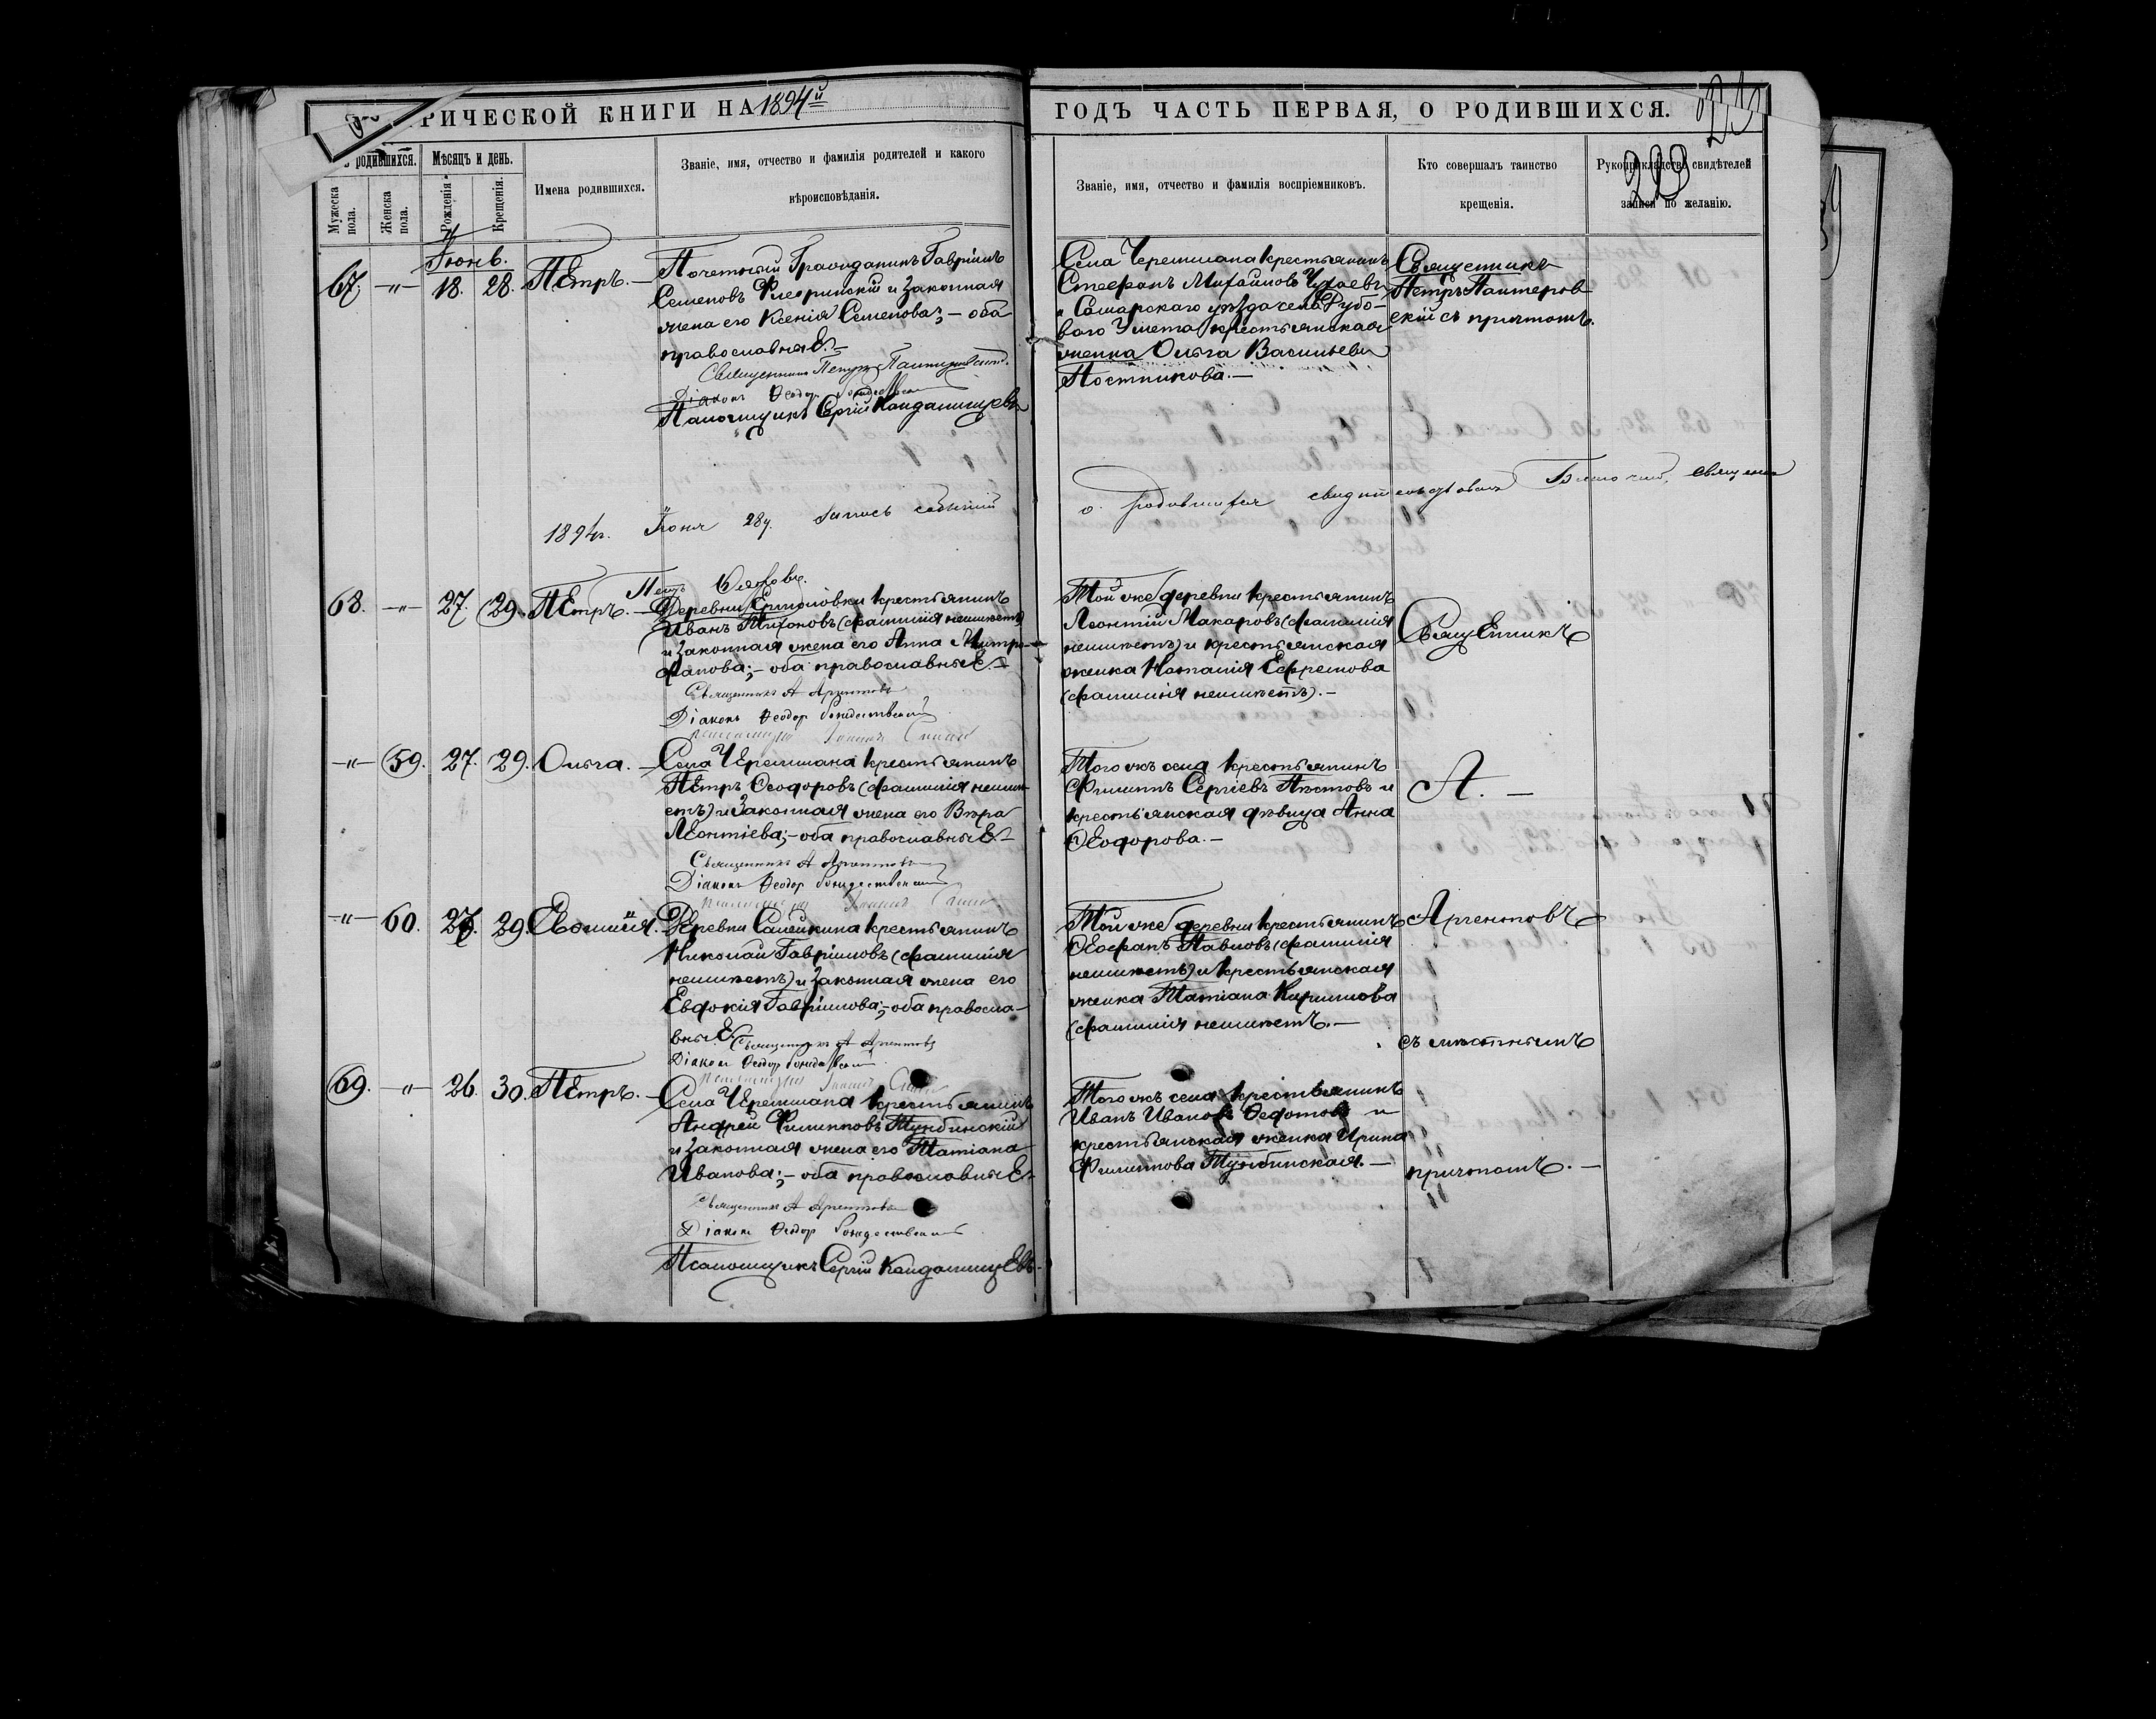 РИЧЕСКОЙ КНИГИ НА 1894й
ГОДЪ ЧАСТЬ ПЕРВАЯ, О РОДИВШИХСЯ.
родившихся.
Мѣсяцъ и день.
Мужеска пола.
Женска пола.
Рожденія
Крещенія.
Имена родившихся.
Званіе, имя, отчество и фамилія родителей и какого
вѣроисповѣданія.
Званіе, имя, отчество и фамилія воспріемниковъ.
Кто совершалъ таинство
крещенія.
Рукоприкладство свидѣтелей
записи по желанію.
203
Іюнь.
67. -"- 18. 28. Петръ.
Почетный Гражданинъ Гавріилъ
Семеновъ Флегринскій и законная
жена его Ксенія Семенова; - оба
православные. -
Священникъ Петръ
Діаконъ Ѳеодор Рождественскій
Псаломщикъ Сергій Кандалинцевъ
Села Черемшана крестьянинъ
Стефанъ Михайловъ Чухаевъ
и Самарскаго уѣзда села Дубо-
ваго Умета крестьянская
женка Ольга Васильева
Постникова. -
Священникъ
Петръ Пантеров-
скій съ причтомъ.
1894г. Іюня 28 д. запись событій
о родившихся свидѣтельствовалъ Благочин. священн
Петръ
68. -"- 27. 29. Петръ. -
Деревни Ермоловки крестьянинъ
Иванъ Тихоновъ (фамиліи неимѣетъ)
и законная жена его Анна Митро-
фанова; - оба православные. -
Священникъ А Аргентовъ
Діаконъ Ѳеодор Рождественскій
Той же деревни крестьянинъ
Леонтій Макаровъ (фамиліи
неимѣетъ) и крестьянская
женка Наталія Ефремова
(фамиліи неимѣетъ). -
Священникъ
-"- 59. 27. 29. Ольга. -
Села Черемшана крестьянинъ
Петръ Ѳеодоровъ (фамиліи неим-
етъ) и законная жена его Вѣра
Леонтіева; - оба православные. -
Священникъ А Аргентовъ
Діаконъ Ѳеодор Рождественскій
Того жъ села крестьянинъ
Филиппъ Сергіевъ Пѣстовъ и
крестьянская дѣвица Анна
Ѳеодорова. -
А. -
-"- 60. 27. 29.
Деревни Салейкина крестьянинъ
Николай Гавріиловъ (фамиліи
неимѣетъ) и законная жена его
Евдокія Гавріилова; - оба правосла-
вные. Священникъ А Аргентовъ
Діаконъ Ѳеодор Рождественскій
Той же деревни крестьянинъ
Ѳеофанъ Павловъ (фамиліи
неимѣетъ) и крестьянская
женка Татіана Кириллова
(фамиліи неимѣетъ. -
Аргентовъ
съ мѣстнымъ
69. -"- 26. 30. Петръ. -
Села Черемшана крестьянинъ
Андрей Филипповъ Тунбинскій
и законная жена его Татіана
Иванова; - оба православные.
Священникъ А Аргентовъ
Діаконъ Ѳеодор Рождественскій
Псаломщикъ Сергій Кандалинцевъ.
Того жъ села крестьянинъ
Иванъ Ивановъ Ѳедотовъ и
крестьянская женка Ирина
Филиппова Тунбинская. -
причтомъ. -